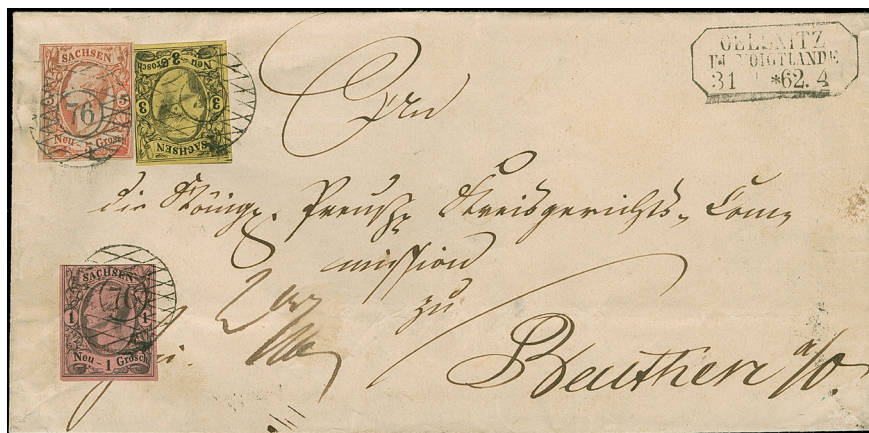 SACHSEN
5 5
76
Neu - 5 Grosch
Neu - 3 Grosch
3 3
SACHSEN
OELSNITZ
IM VOIGTLANDE
31 *62. 4
An
die Königl. Preuß. Kreisgerichts-Com-
mission
zu
Beuthen a/O.
SACHSEN
76
1 1
Neu - 1 Grosch